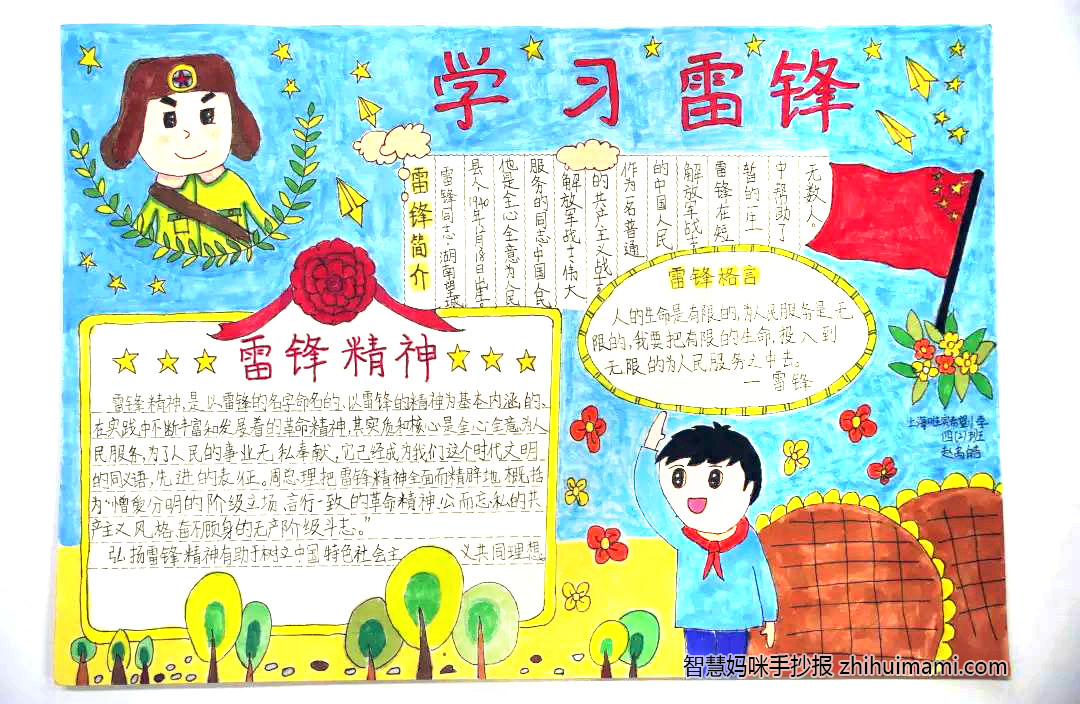 学习雷锋
雷锋简介
雷锋同志，湖南望城
县人1940年12月18日出生。
他是全心全意为人民
服务的同志中国人民
解放军战士伟大
的共产主义战士。
作为一名普通
的中国人民
解放军战士
雷锋在短
暂的一生
中帮助了
无数人。
雷锋格言
人的生命是有限的，为人民服务是无
限的，我要把有限的生命，投入到
无限的为人民服务之中去。
—雷锋
雷锋精神
雷锋精神，是以雷锋的名字命名的、以雷锋的精神为基本内涵的、
在实践中不断丰富和发展着的革命精神，其实质和核心是全心全意为人
民服务，为了人民的事业无私奉献，它已经成为我们这个时代文明
的同义语，先进的表征。周总理把雷锋精神全面而精辟地概括
为“憎爱分明的阶级立场，言行一致的革命精神，公而忘私的共
产主义风格，奋不顾身的无产阶级斗志。”
弘扬雷锋精神有助于树立中国特色社会主 义共同理想
四(2)班
智慧妈咪手抄报 zhihuimami.com